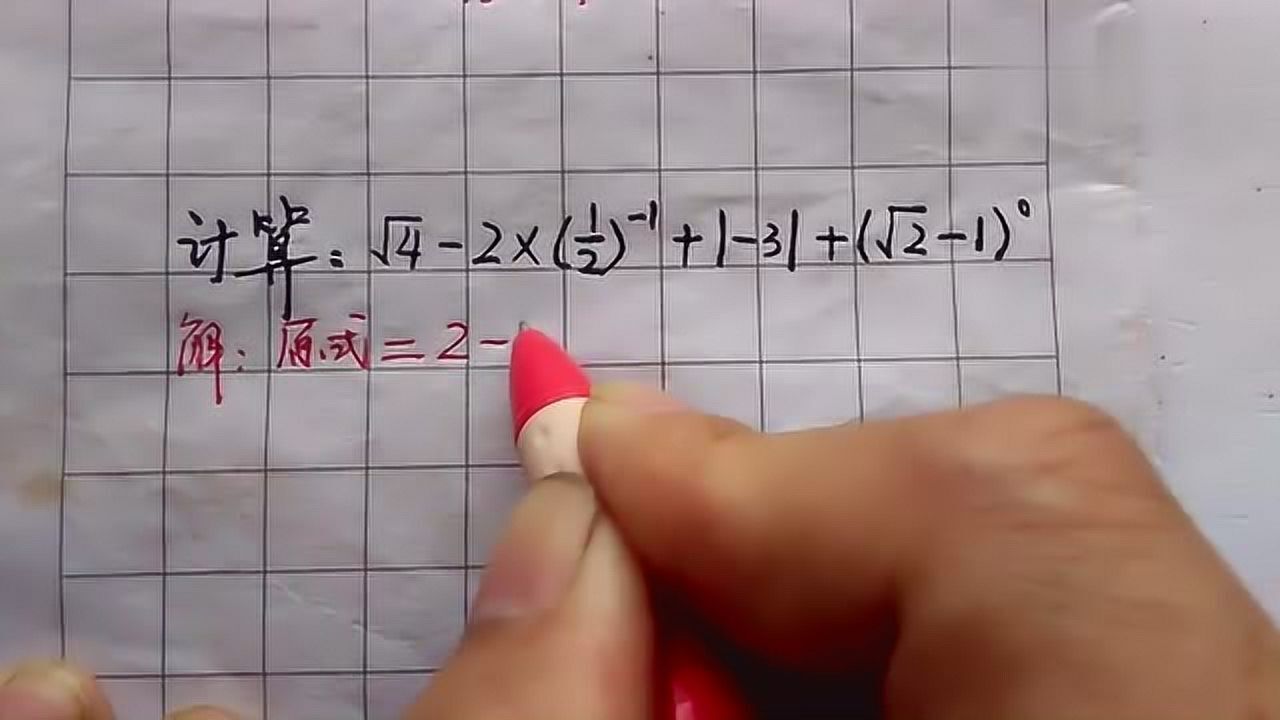 计算：√4-2×(1/2)⁻¹+|-3|+(√2-1)⁰
解：原式=2-